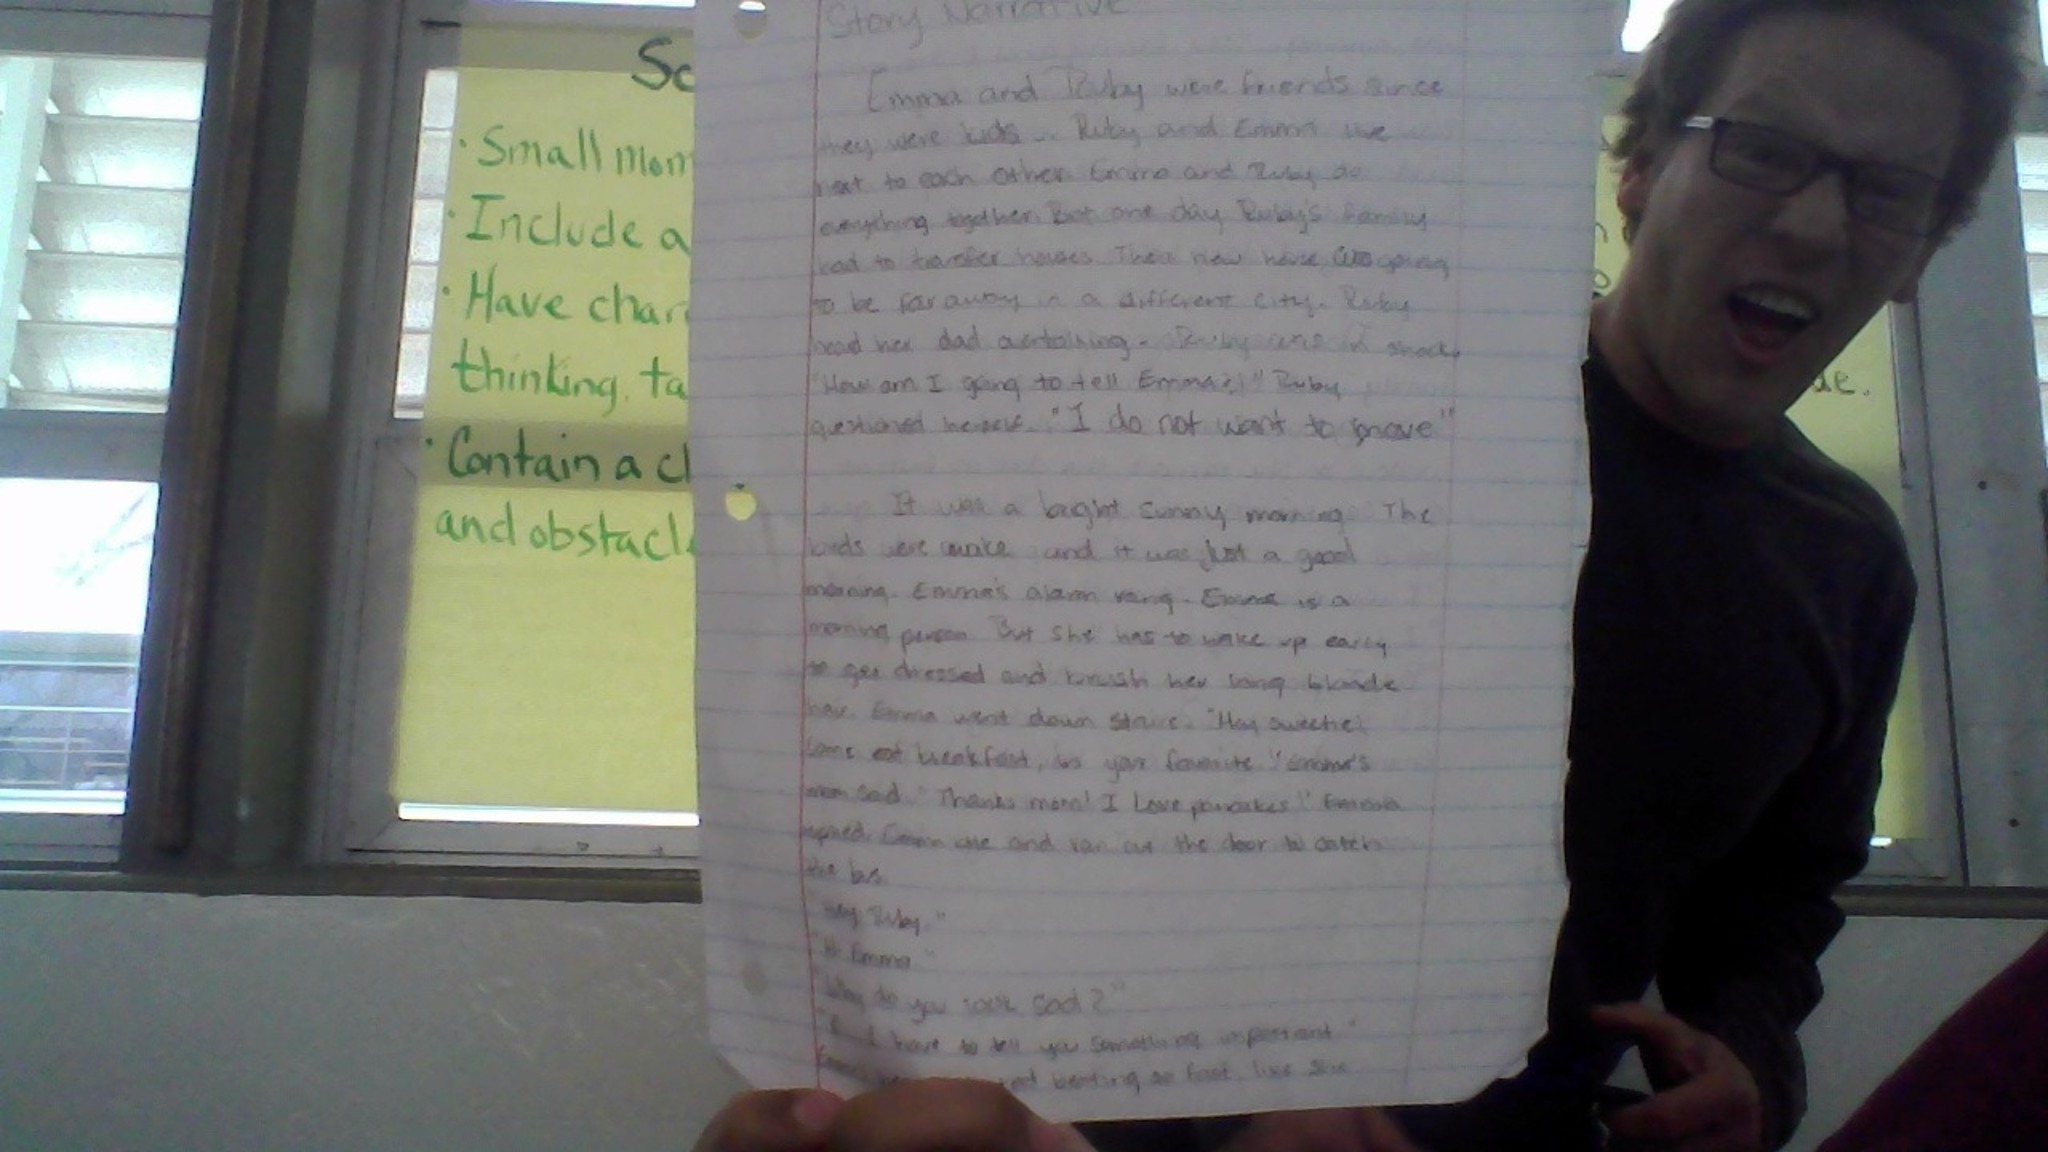 Sc
• Small mom
• Include a
• Have char
thinking, ta
• Contain a cl
and obstacle
de.
Story Narrative
Emma and Ruby were friends since
they were kids. Ruby and Emma live
next to each other. Emma and Ruby do
everything together. But one day Ruby's family
had to transfer houses. Their new house was going
to be far away in a different city. Ruby
head her dad talking. Ruby was in shock.
"How am I going to tell Emma?!" Ruby
questioned herself. "I do not want to move"
It was a bright sunny morning. The
birds were awake and it was just a good
morning. Emma's alarm rang. Emma is a
morning person. But she has to wake up early
to get dressed and brush her long blonde
hair. Emma went down stairs. "Hey sweetie!
come eat breakfast, its your favorite." Emma's
mom said. "Thanks mom! I Love pancakes!" Emma
Emma ate and ran out the door to catch
the bus.
"Hey Ruby."
"Hi Emma"
"Why do you look sad?"
"I have to tell you something important"
beating so fast, like she